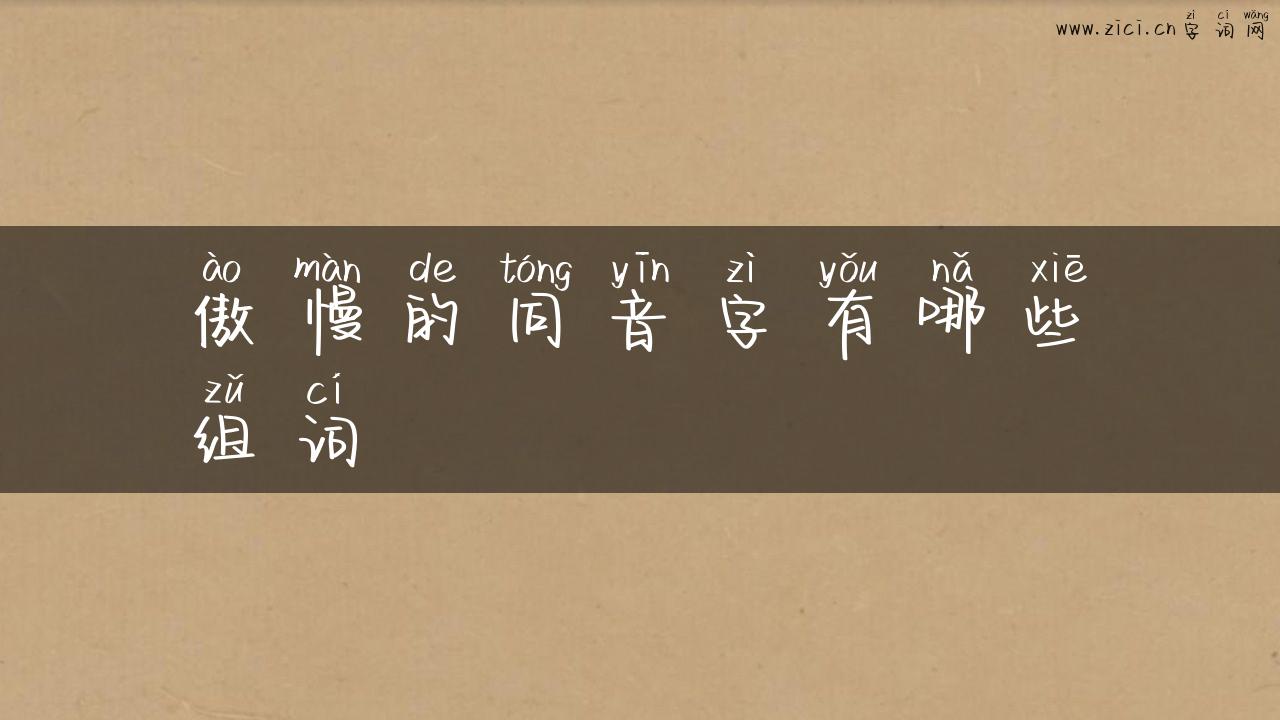 zì cí wǎng
www.zici.cn 字 词 网
ào màn de tóng yīn zì yǒu nǎ xiē
傲 慢 的 同 音 字 有 哪 些
zǔ cí
组 词